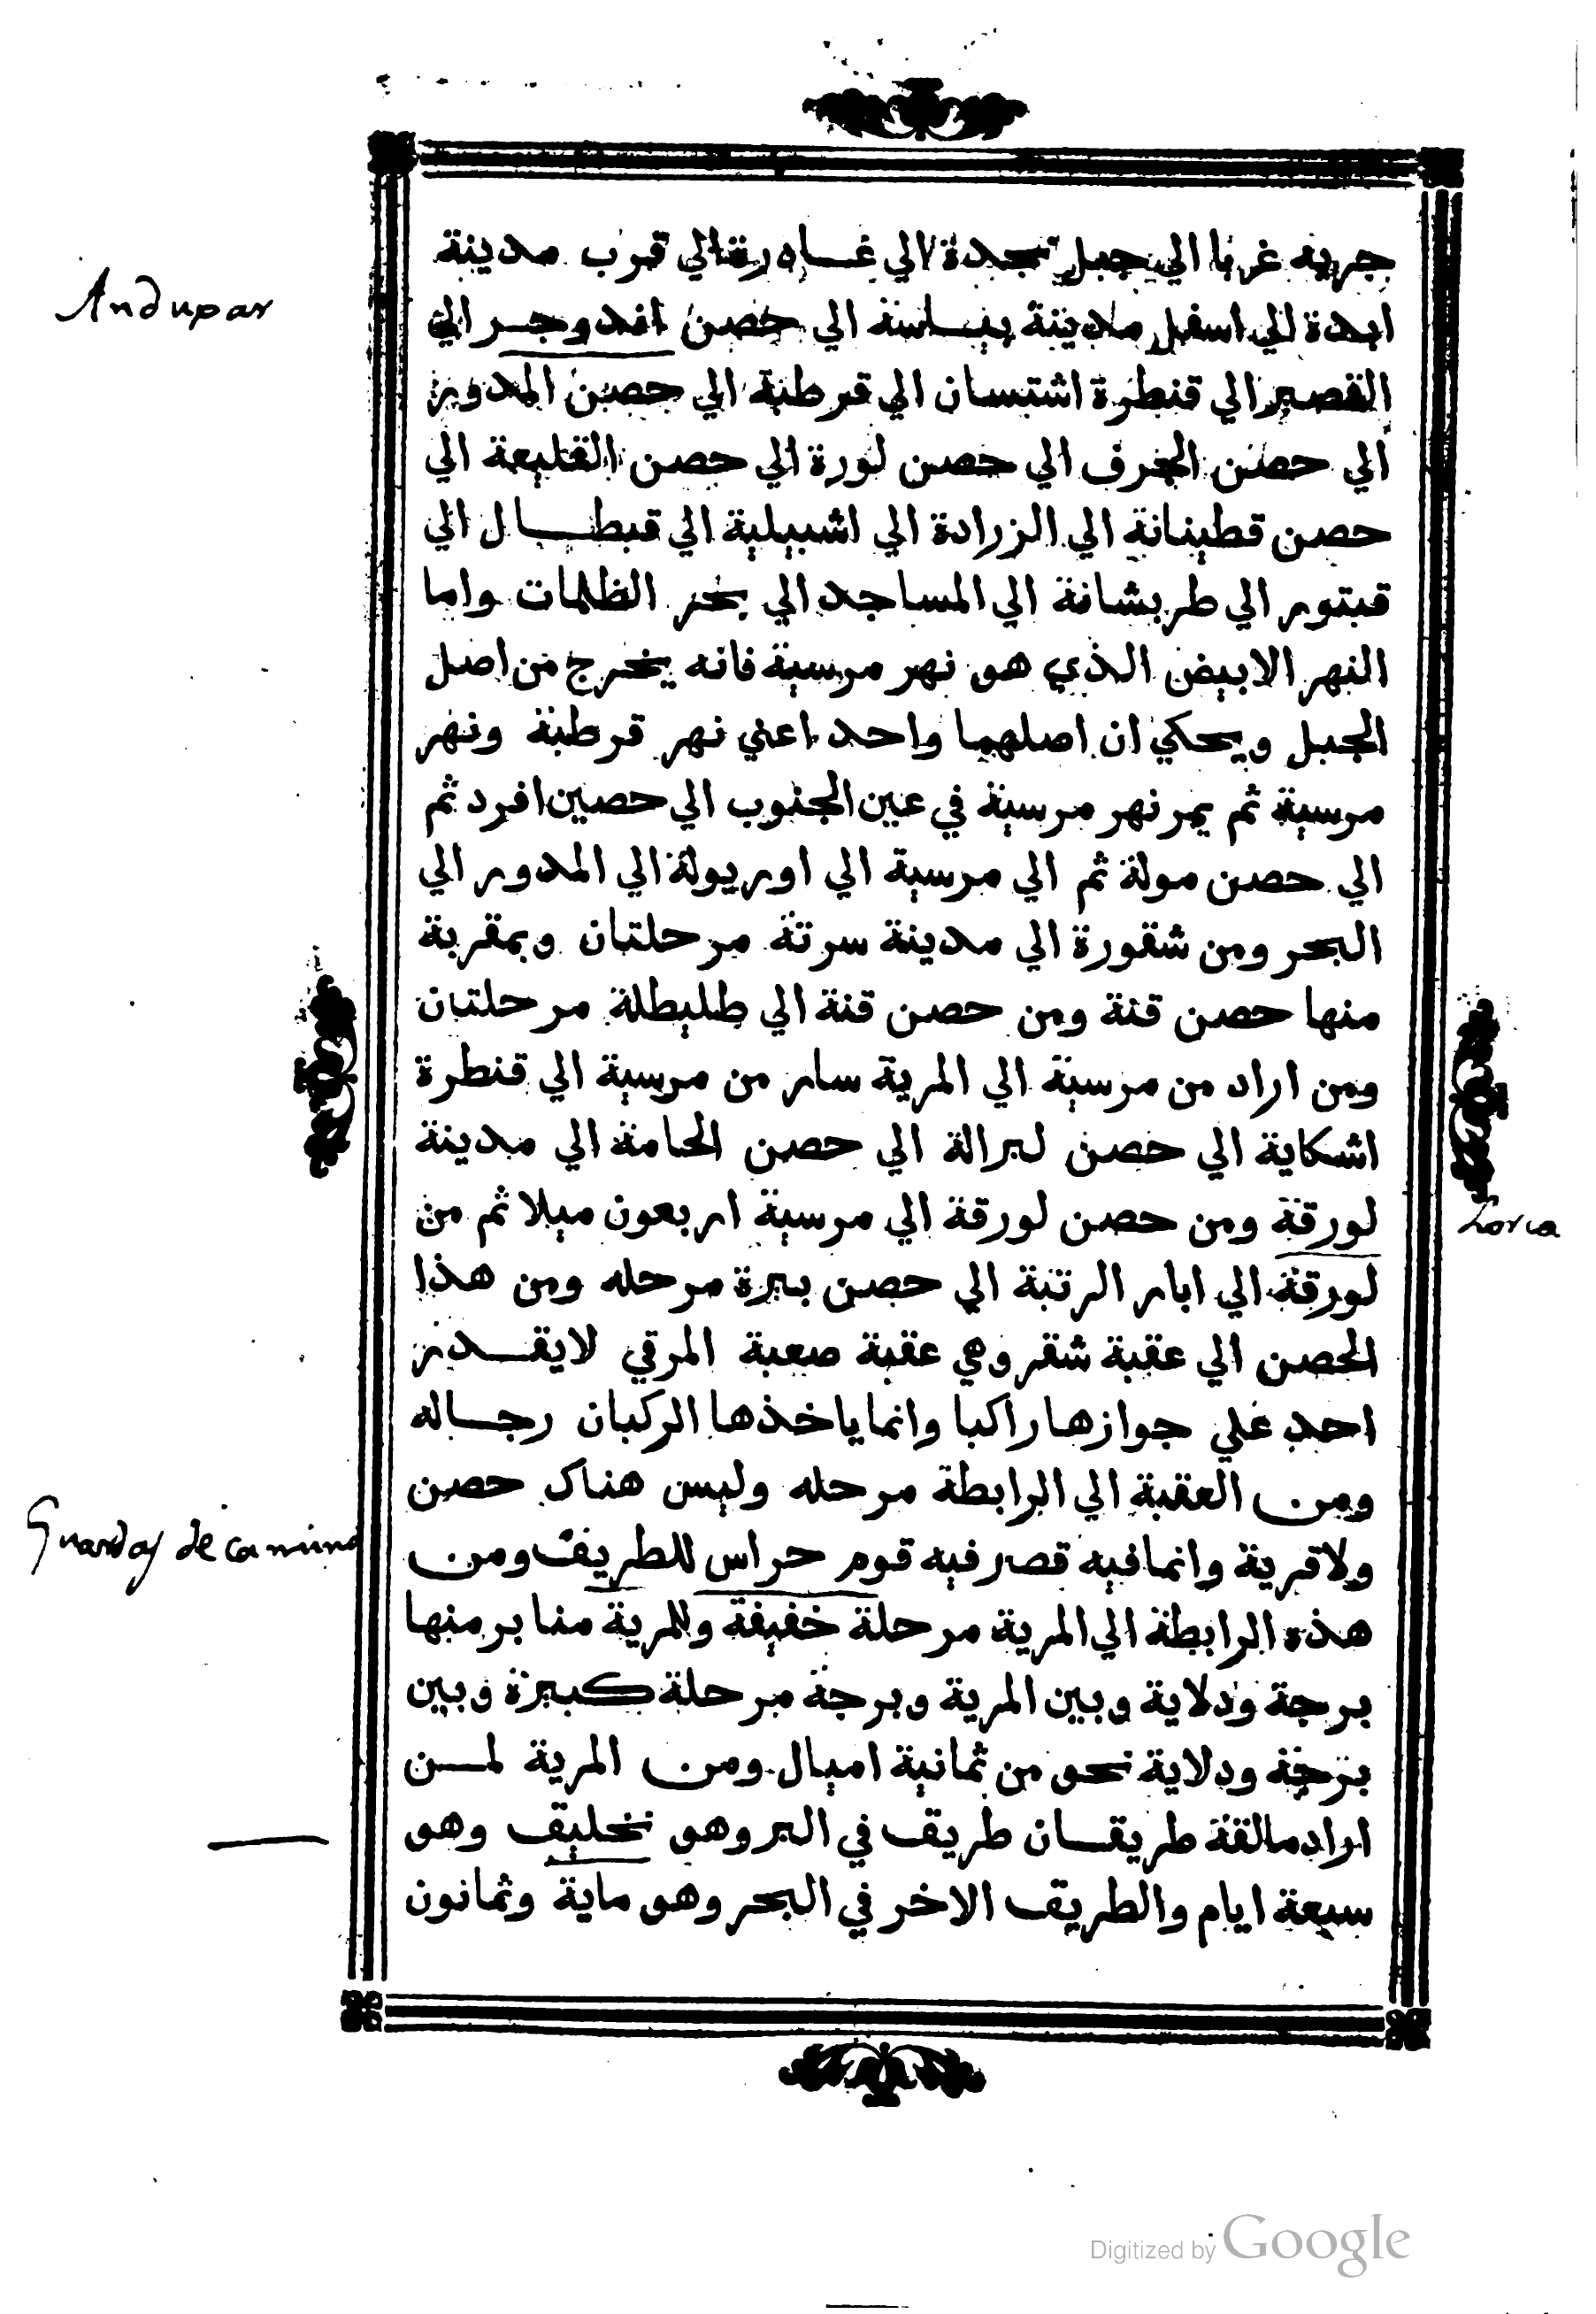 جريه غربا الي جبل نجدة الي غادرة الي قرب مدينة
ابدة الي اسفل مدينة بياسة الي حصن اندوجر الي
القصير الي قنطرة اشتسان الي قرطبة الي حصن المدور
الي حصن الجرف الي حصن لورة الي حصن القليعة الي
حصن قطينانة الي الزرادة الي اشبيلية الي قبطال الي
قبتور الي طربشانة الي المساجد الي بحر الظلمات واما
النهر الابيض الذي هو نهر مرسية فانه يخرج من اصل
الجبل ويحكي ان اصلهما واحد اعني نهر قرطبة ونهر
مرسية ثم يمر نهر مرسية في عين الجنوب الي حصين افرد ثم
الي حصن مولة ثم الي مرسية الي اوريولة الي المدور الي
البحر ومن شقورة الي مدينة سرتة مرحلتان وبمقربة
منها حصن قنة ومن حصن قنة الي طليطلة مرحلتان
ومن اراد من مرسية الي المرية سار من مرسية الي قنطرة
اشكاية الي حصن لبرالة الي حصن الحامة الي مدينة
لورقة ومن حصن لورقة الي مرسية اربعون ميلا ثم من
لورقة الي ابار الرتبة الي حصن بيرة مرحله ومن هذا
الحصن الي عقبة شقر وهي عقبة صعبة المرقي لايقدر
احد علي جوازها راكبا وانما ياخذها الركبان رجاله
ومن العقبة الي الرابطة مرحله وليس هناك حصن
ولا قرية وانما فيه قصر فيه قوم حراس للطريق ومن
هذه الرابطة الي المرية مرحلة خفيفة وللمرية منابر منها
برجة ودلاية وبين المرية وبرجة مرحلة كبيرة وبين
برجة ودلاية نحو من ثمانية اميال ومن المرية لمن
اراد مالقة طريقان طريق في البر وهو تحليق وهو
سبعة ايام والطريق الاخر في البحر وهو ماية وثمانون
Anduxar
Lorca
Guardas de camino
Digitized by Google